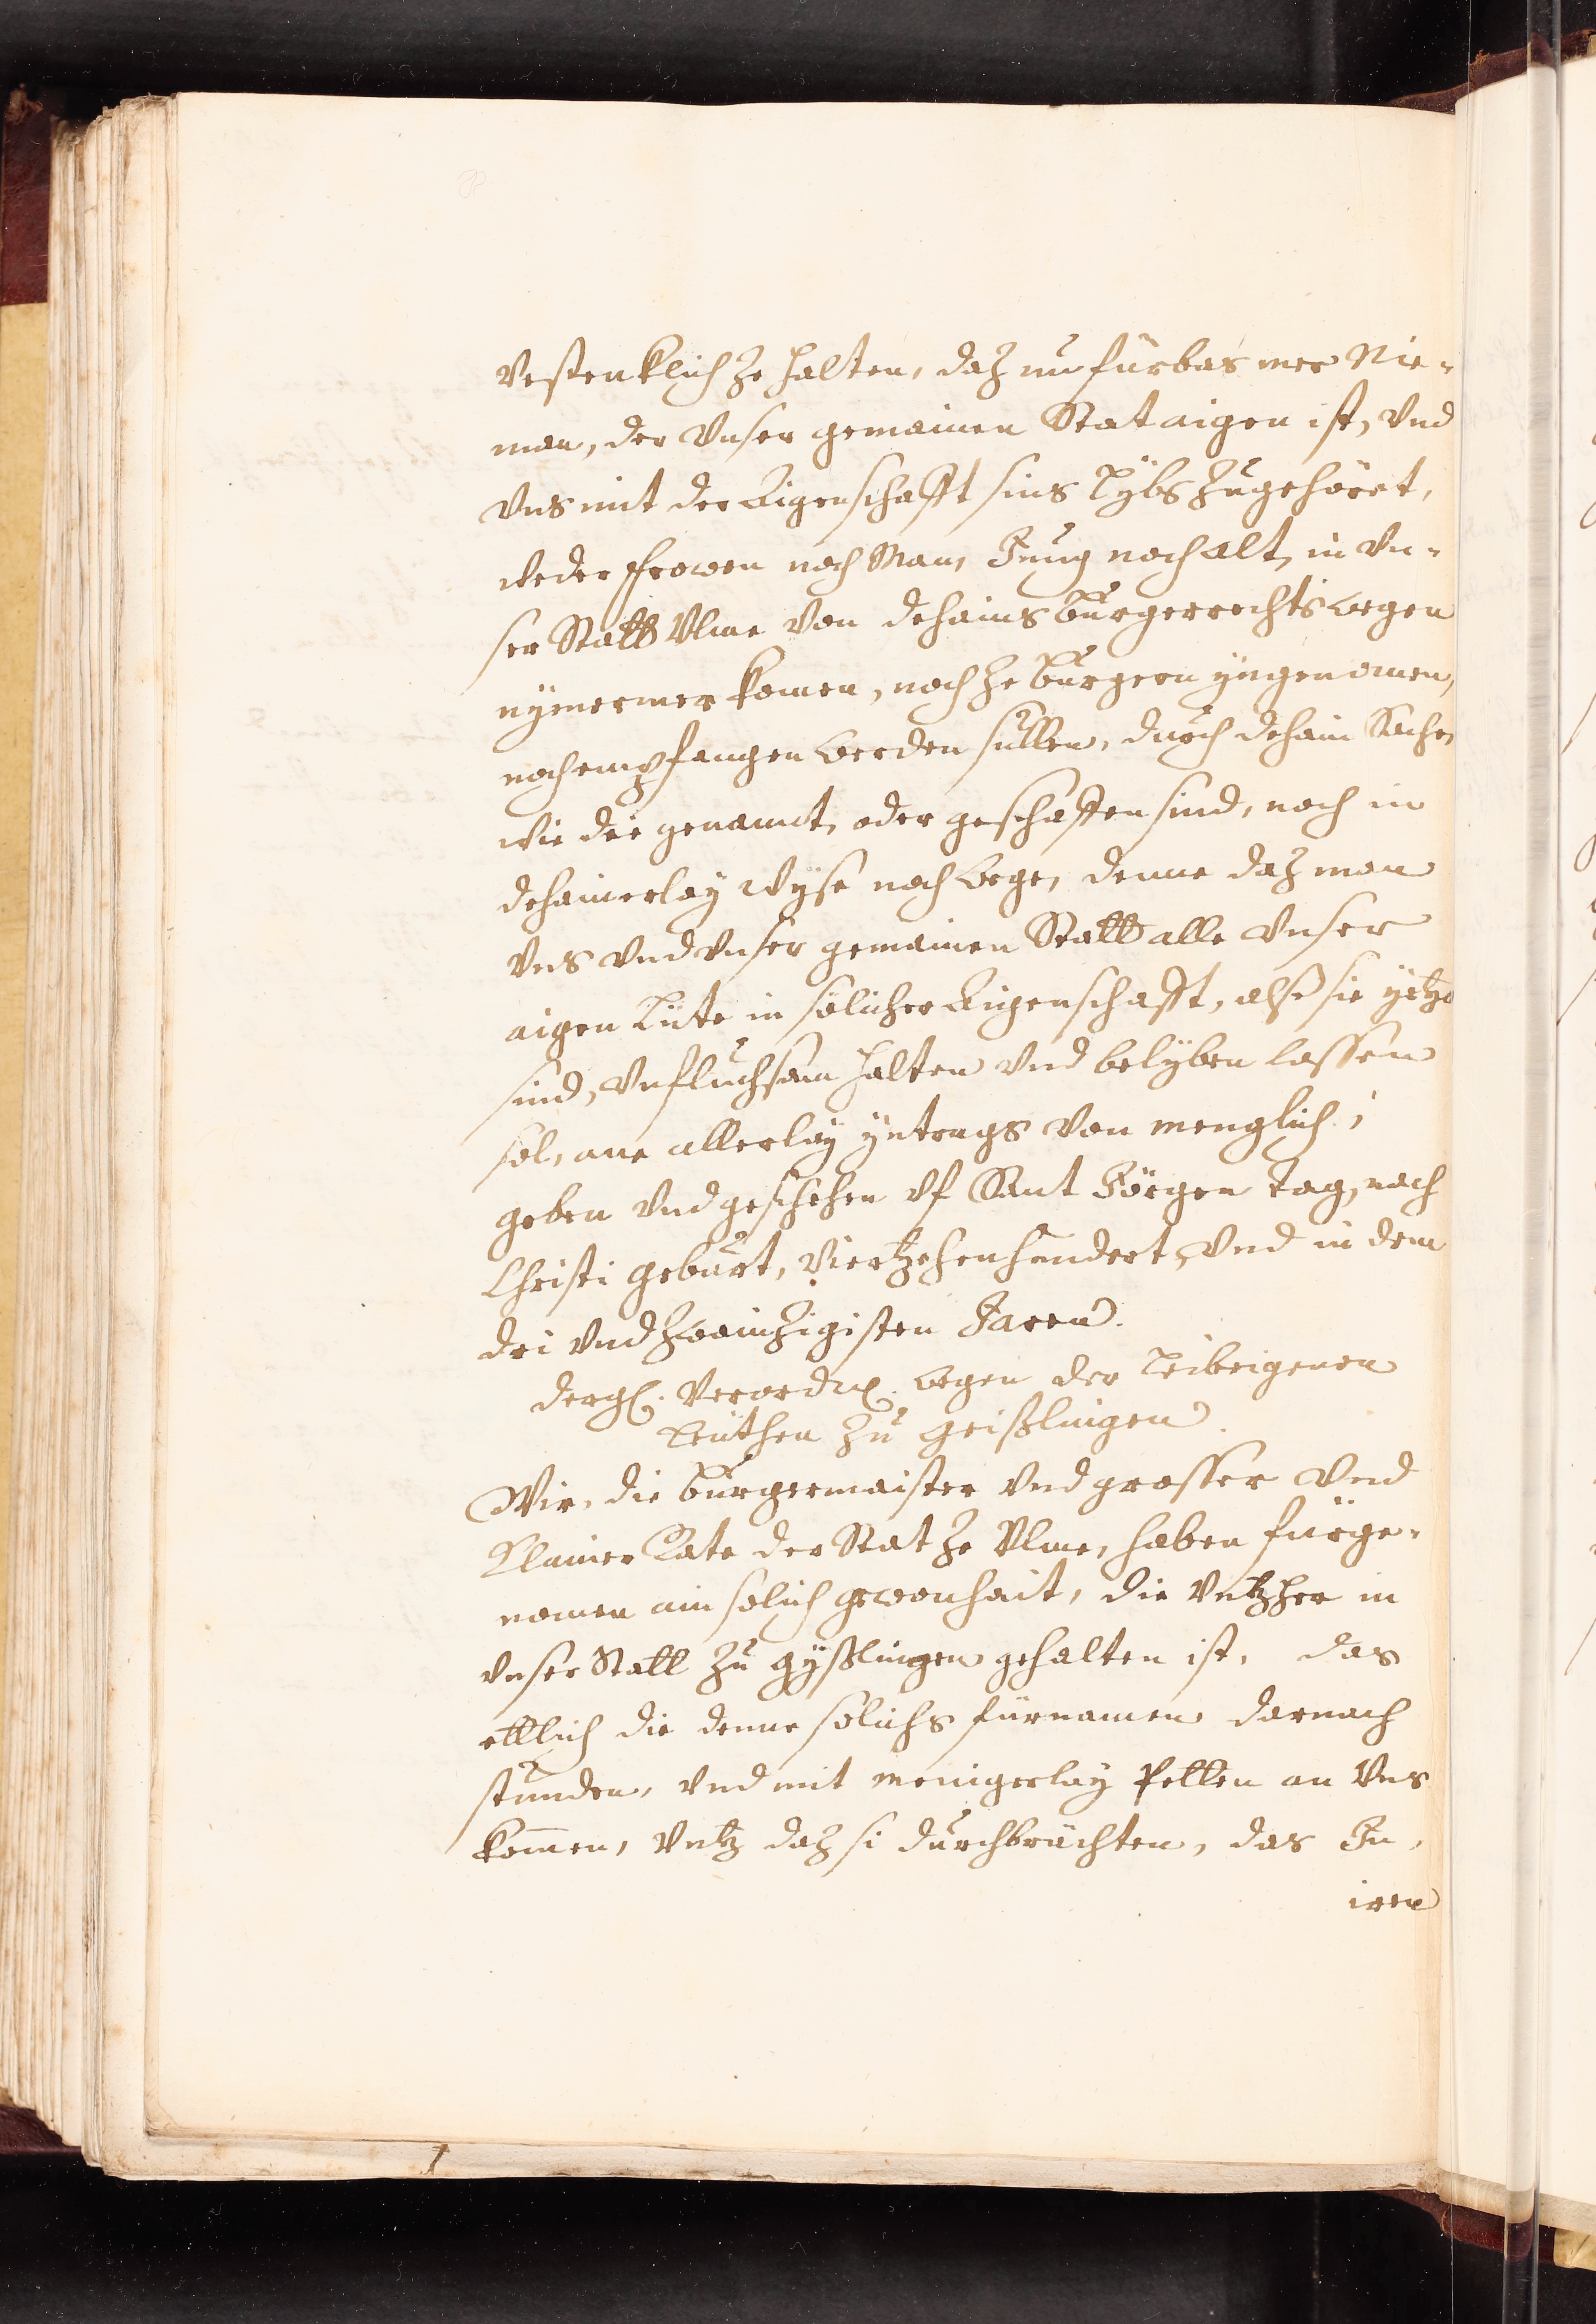 Vestenklich ze halten, daz nu fürbas mer Nie-
man, der Vnser gemainen Stat aigen ist, Vnd
Vns mit der Aigenschafft sins Lybs Zugehört,
weder frowen noch Man, Jung noch alt, in Vn-
ser Statt Vlme von dehains burgerrechts wegen
nymermer komen, noch ze burgern yngenomen,
noch empfangen werden süllen, durch dehain Sache,
wie die genannt, oder geschaffen sind, noch in
dehainerlay wyse noch Wege, denne daz man
Vns Vnd Vnser gemainen Statt alle Vnser
aigen Lüte in sölicher Aigenschafft, alß sie yetzo
sind, Vnfluchsam halten Vnd belyben lassen
sol, ane allerlay yntrags von menglich;
geben Vnd geschehen vf Sant Jörgen Tag, nach
Christi geburt, Viertzehenhundert, Vnd in dem
dri Vnd Zwainzigisten Jaren.
dergl. Verordn. wegen der Leibeigenen
Leuthen zu Geißlingen.
Wir, die burgermaister Vnd grosser Vnd
Klainer Rate der Stat ze Vlme, haben fürge-
nomen ain solich gewonhait, die Vntzher in
Vnser Statt zu Gyßlingen gehalten ist, das
ettlich die denne solichs fürnamen darnach
stunden, Vnd mit menigerlay Petten an Vns
komen, Vntz daz si durchbrächten, das Jn,
iren